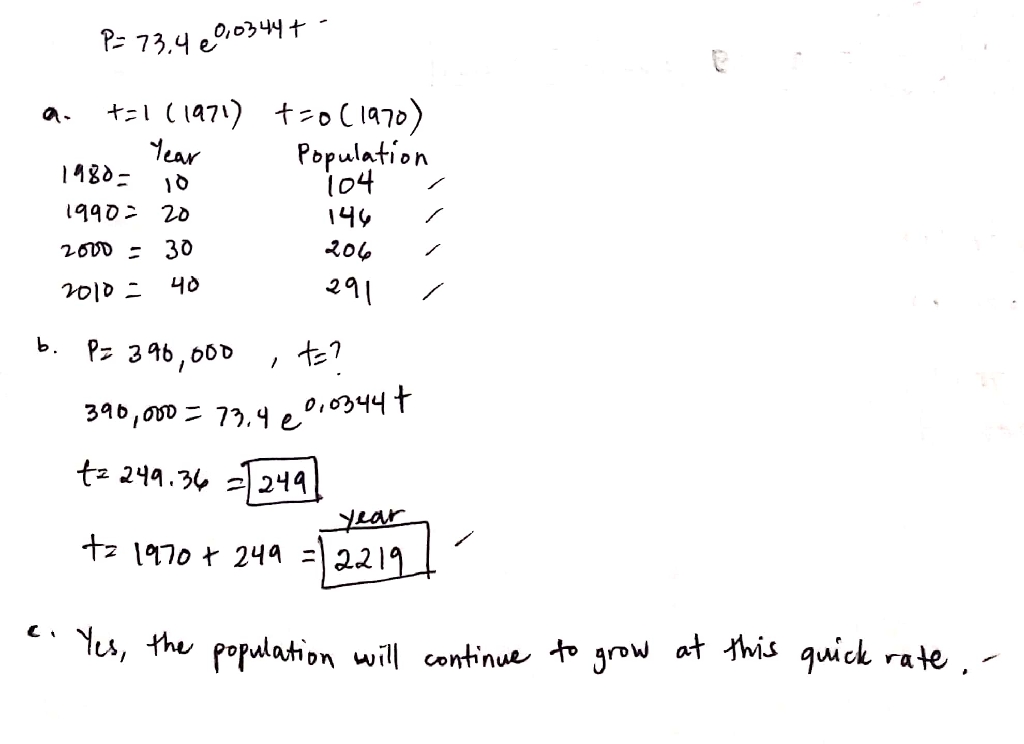 P= 73.4 e^0.0344t
a. t=1 (1971) t=0 (1970)
Year Population
1980= 10 104
1990= 20 146
2000 = 30 206
2010 = 40 291
b. P= 390,000 , t=?
390,000 = 73.4 e^0.0344t
t= 249.36 = 249
year
t= 1970 + 249 = 2219
c. Yes, the population will continue to grow at this quick rate.